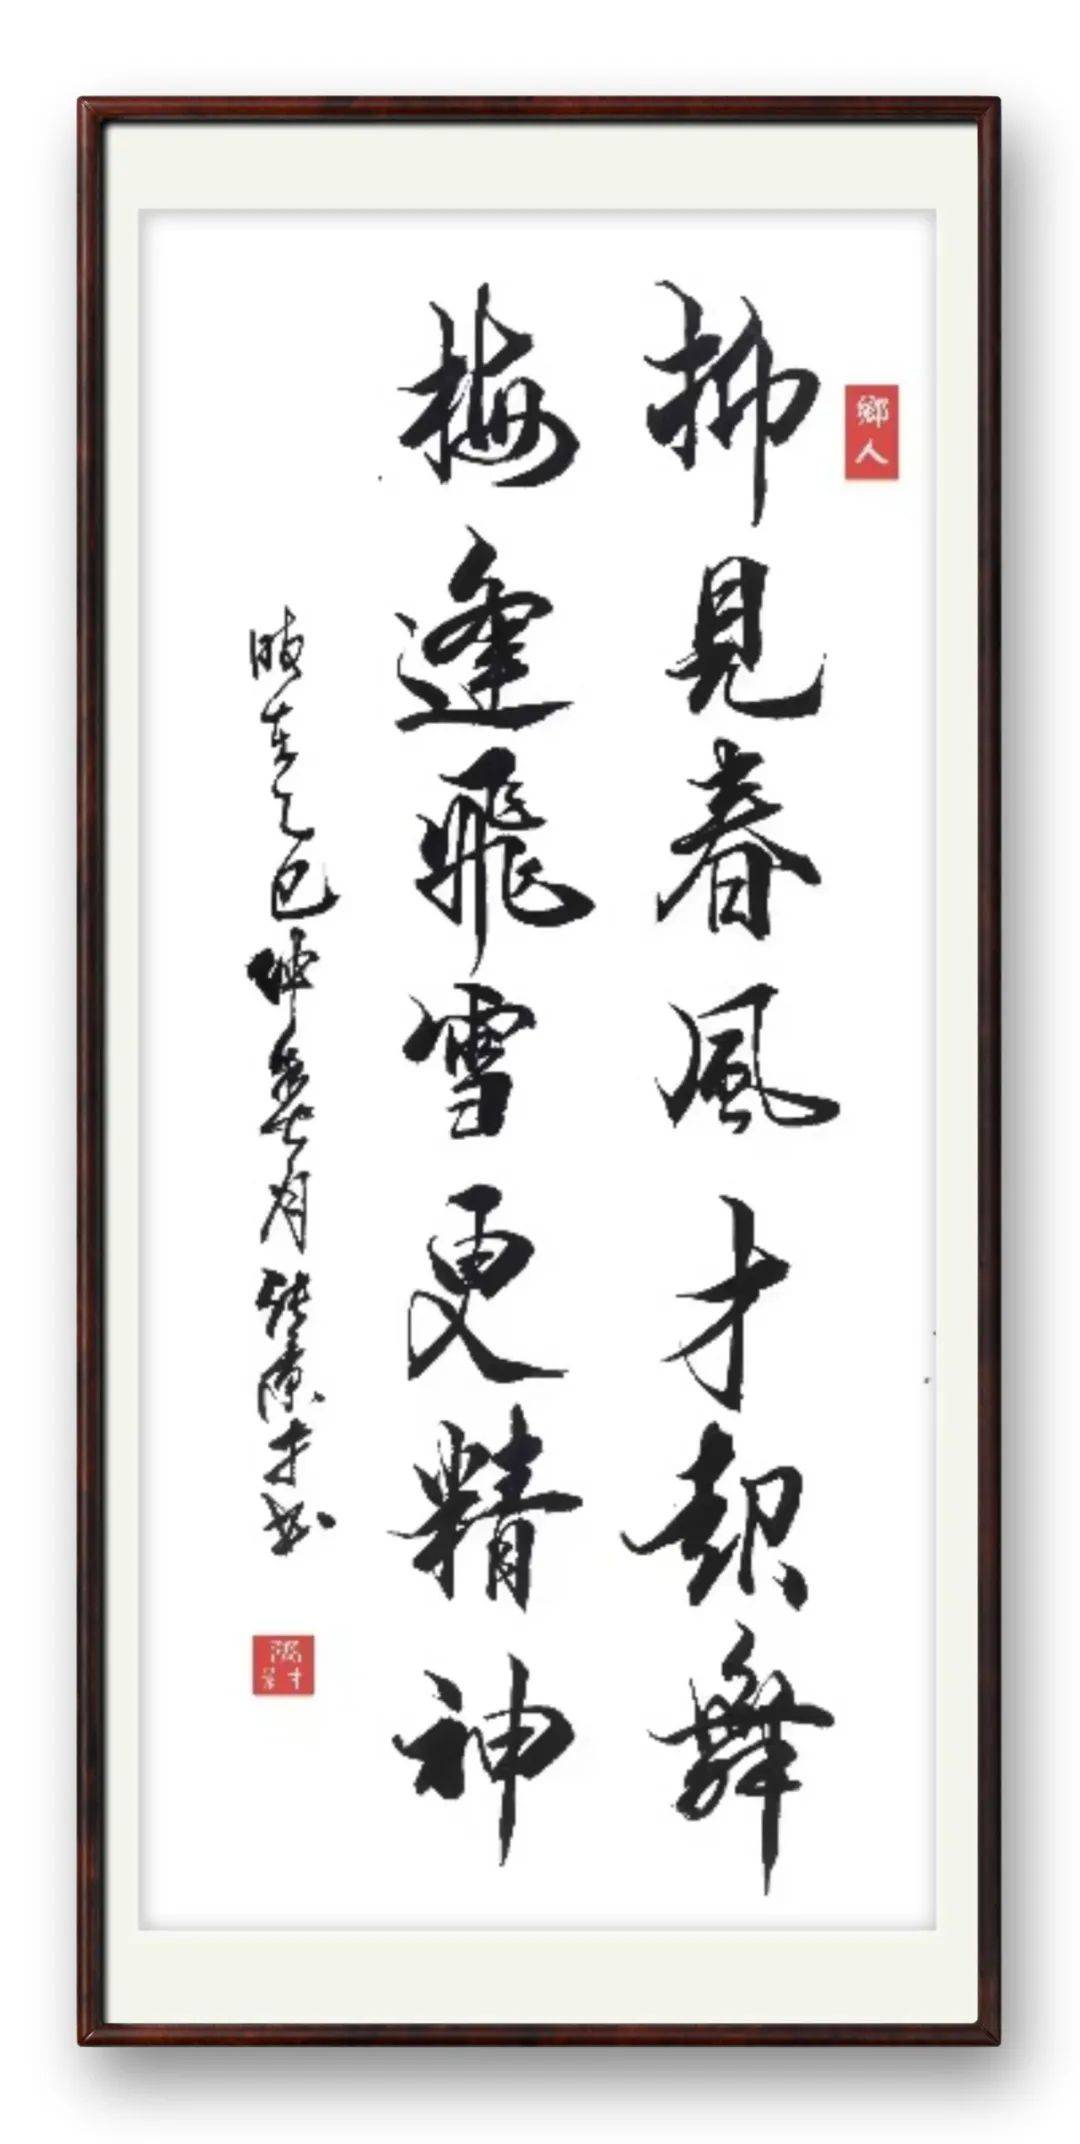 鄉人
柳見春風才舞
梅逢飛雪更精神
時在乙巳仲月張才書